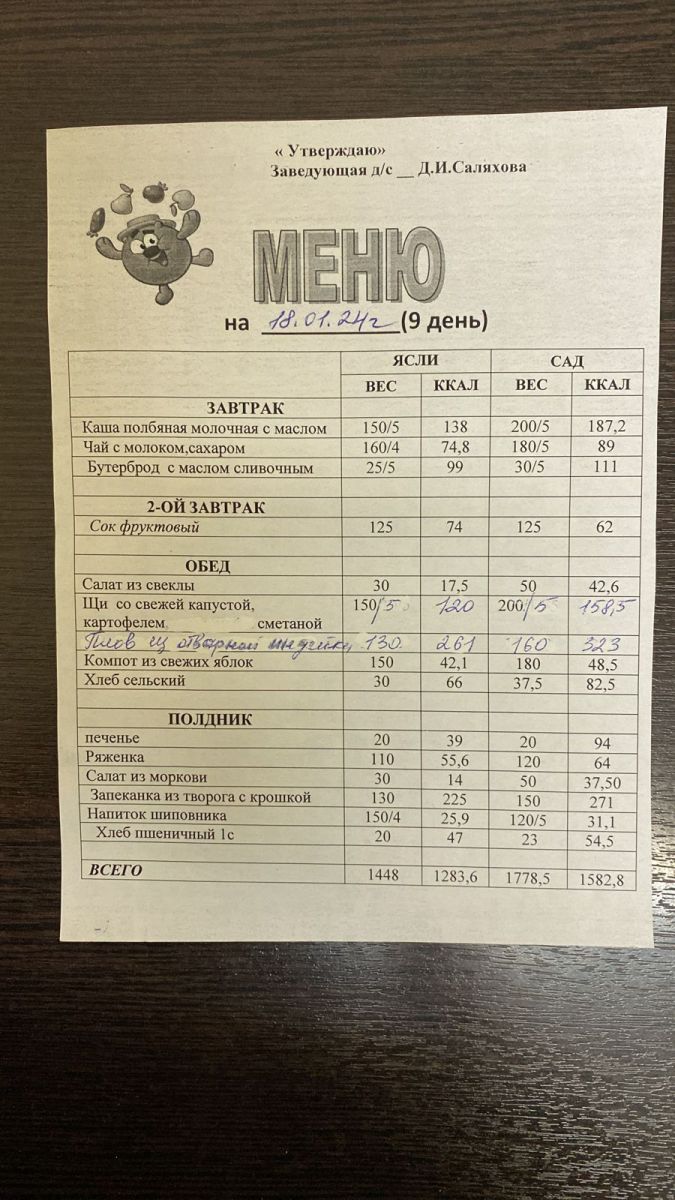 « Утверждаю»
Заведующая д/с __ Д.И.Саляхова
МЕНЮ
на 18.01.24г (9 день)
ЯСЛИ САД
ВЕС ККАЛ ВЕС ККАЛ
ЗАВТРАК
Каша полбяная молочная с маслом 150/5 138 200/5 187,2
Чай с молоком,сахаром 160/4 74,8 180/5 89
Бутерброд с маслом сливочным 25/5 99 30/5 111
2-ОЙ ЗАВТРАК
Сок фруктовый 125 74 125 62
ОБЕД
Салат из свеклы 30 17,5 50 42,6
Щи со свежей капустой, 150/5 120 200/5 158,5
картофелем сметаной
Плов из отварной индейки 130 261 160 323
Компот из свежих яблок 150 42,1 180 48,5
Хлеб сельский 30 66 37,5 82,5
ПОЛДНИК
печенье 20 39 20 94
Ряженка 110 55,6 120 64
Салат из моркови 30 14 50 37,50
Запеканка из творога с крошкой 130 225 150 271
Напиток шиповника 150/4 25,9 120/5 31,1
Хлеб пшеничный 1с 20 47 23 54,5
ВСЕГО 1448 1283,6 1778,5 1582,8